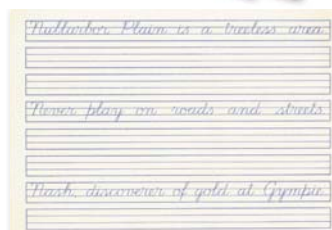 Nullarbor Plain is a treeless area.
Never play on roads and streets.
Nash, discoverer of gold at Gympie.